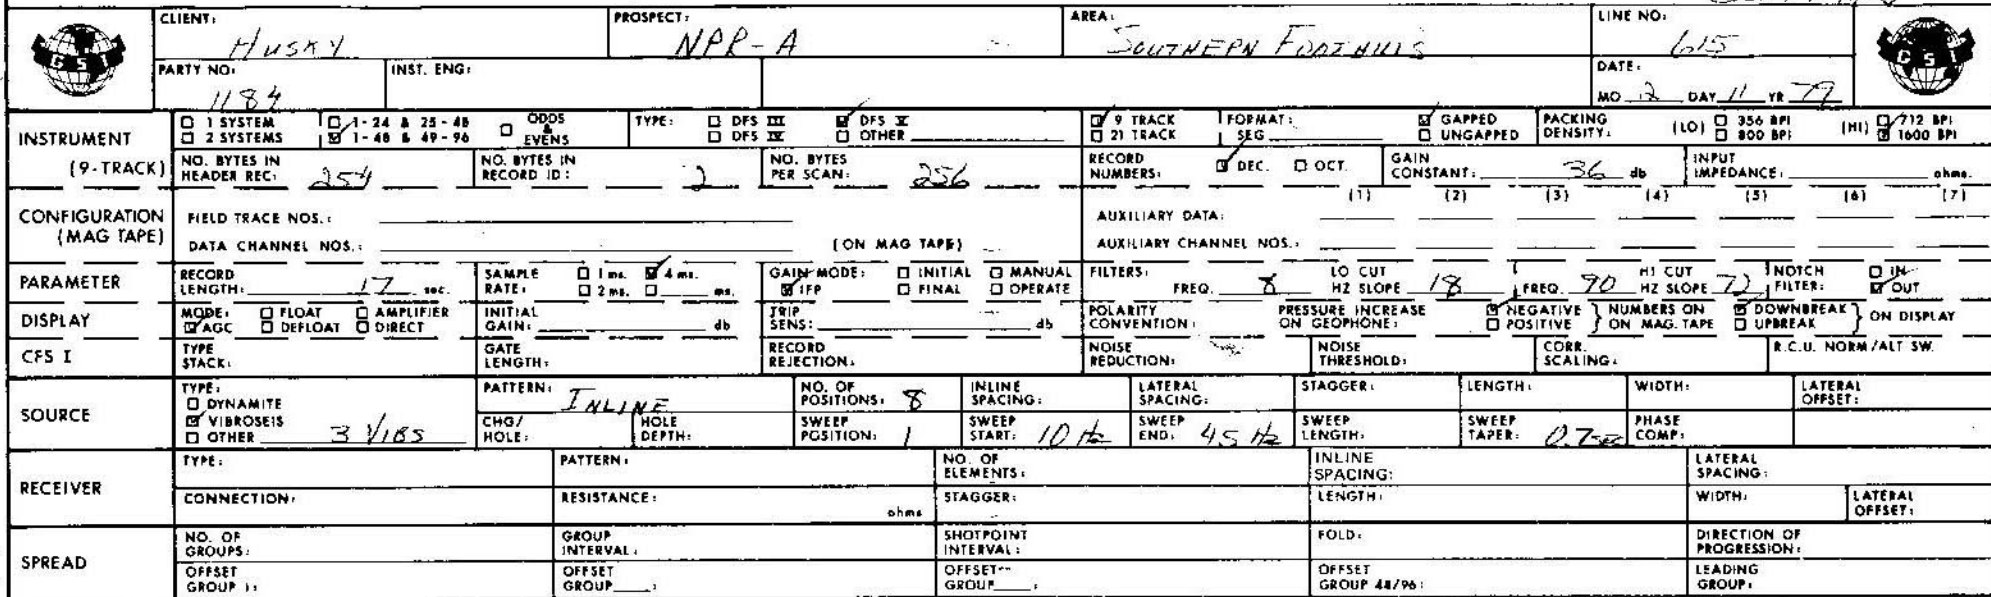 CLIENT: HUSKY PROSPECT: NPR-A AREA: SOUTHERN FOOTHILLS LINE NO: 615
GSI GSI
PARTY NO: 1184 INST. ENG: DATE:
MO 12 DAY 11 YR 79
INSTRUMENT (9-TRACK)
☐ 1 SYSTEM ☐ 1-24 & 25-48 ☐ ODDS & EVENS TYPE: ☐ DFS III ☑ DFS V ☑ 9 TRACK FORMAT: ☑ GAPPED PACKING DENSITY: (LO) ☐ 356 BPI (HI) ☐ 712 BPI
☐ 2 SYSTEMS ☑ 1-48 & 49-96 ☐ DFS IV ☐ OTHER ☐ 21 TRACK SEG ☐ UNGAPPED ☐ 800 BPI ☑ 1600 BPI
NO. BYTES IN HEADER REC: 254 NO. BYTES IN RECORD ID: 2 NO. BYTES PER SCAN: 256 RECORD NUMBERS: ☑ DEC. ☐ OCT. GAIN CONSTANT: 36 db INPUT IMPEDANCE: ohms.
CONFIGURATION (MAG TAPE)
(1) (2) (3) (4) (5) (6) (7)
FIELD TRACE NOS.: AUXILIARY DATA:
DATA CHANNEL NOS.: (ON MAG TAPE) AUXILIARY CHANNEL NOS.:
PARAMETER RECORD LENGTH: 17 sec. SAMPLE RATE: ☐ 1 ms. ☑ 4 ms. ☐ 2 ms. ☐ ms. GAIN MODE: ☐ INITIAL ☐ MANUAL ☑ IFP ☐ FINAL ☐ OPERATE FILTERS: FREQ. 8 LO CUT HZ SLOPE 18 FREQ. 90 HI CUT HZ SLOPE 72 NOTCH FILTER: ☐ IN ☑ OUT
DISPLAY MODE: ☐ FLOAT ☐ AMPLIFIER ☑ AGC ☐ DEFLOAT ☐ DIRECT INITIAL GAIN: db TRIP SENS: db POLARITY CONVENTION: PRESSURE INCREASE ON GEOPHONE: ☑ NEGATIVE ☐ POSITIVE } NUMBERS ON MAG. TAPE ☑ DOWNBREAK ☐ UPBREAK } ON DISPLAY
CFS I TYPE STACK: GATE LENGTH: RECORD REJECTION: NOISE REDUCTION: NOISE THRESHOLD: CORR. SCALING: R.C.U. NORM/ALT SW.
SOURCE TYPE: ☐ DYNAMITE ☑ VIBROSEIS ☐ OTHER 3 VIBS PATTERN: INLINE NO. OF POSITIONS: 8 INLINE SPACING: LATERAL SPACING: STAGGER: LENGTH: WIDTH: LATERAL OFFSET:
CHG/HOLE: HOLE DEPTH: SWEEP POSITION: 1 SWEEP START: 10 Hz SWEEP END: 45 Hz SWEEP LENGTH: SWEEP TAPER: 0.7 sec PHASE COMP:
RECEIVER TYPE: PATTERN: NO. OF ELEMENTS: INLINE SPACING: LATERAL SPACING:
CONNECTION: RESISTANCE: ohms STAGGER: LENGTH: WIDTH: LATERAL OFFSET:
SPREAD NO. OF GROUPS: GROUP INTERVAL: SHOTPOINT INTERVAL: FOLD: DIRECTION OF PROGRESSION:
OFFSET GROUP 1: OFFSET GROUP : OFFSET GROUP : OFFSET GROUP 48/96: LEADING GROUP: